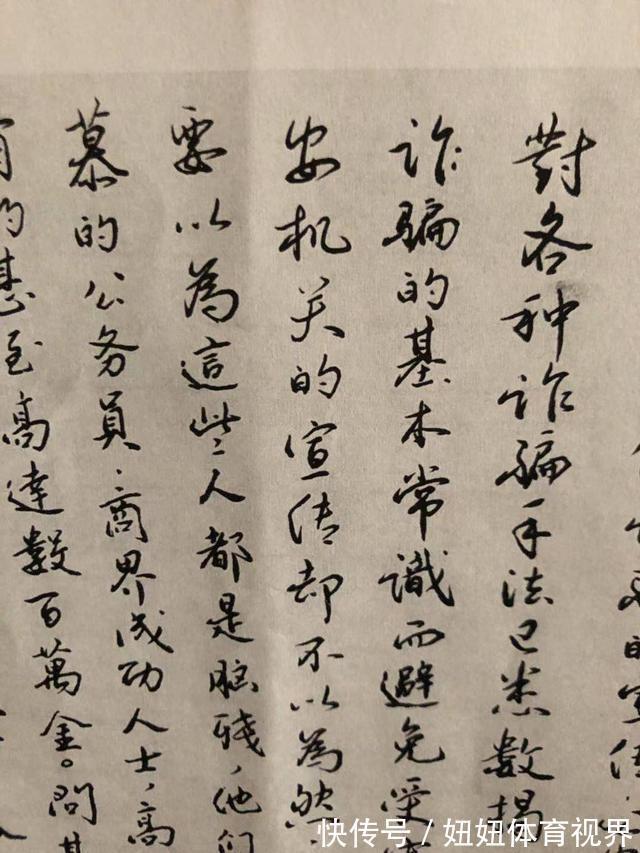 的宣传
對各种诈骗手法已悉数揭
诈骗的基本常識而避免受
安机关的宣传却不以為然
要以為這些人都是脑残，他们
慕的公务員、商界成功人士，高
有的甚至高達數百萬金。問其
快传号／妞妞体育视界